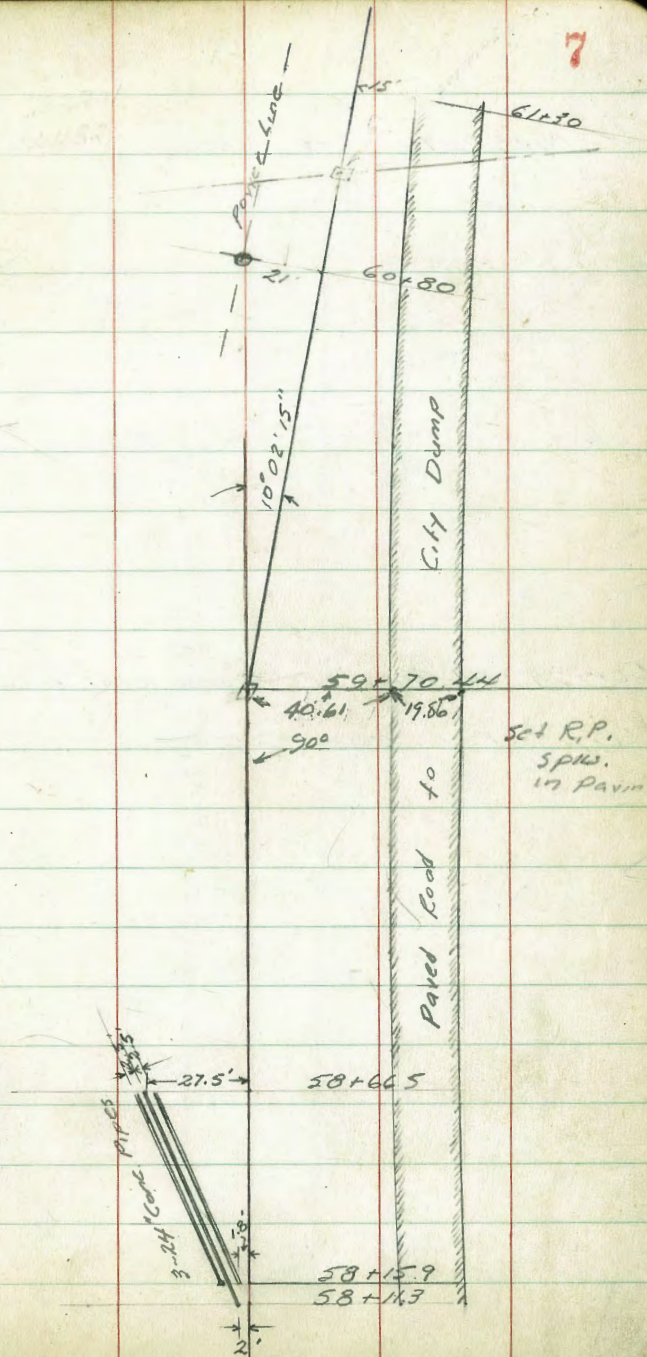 7
15'
61+30
Power Line
21'
60+80
10°02'15"
City Dump
59+70.44
40.61
19.86
90°
Set R.P.
spks.
in Pavin
Paved Road to
27.5'
58+66.5
3-24" Conc. Pipes
58+15.9
58+11.3
2'